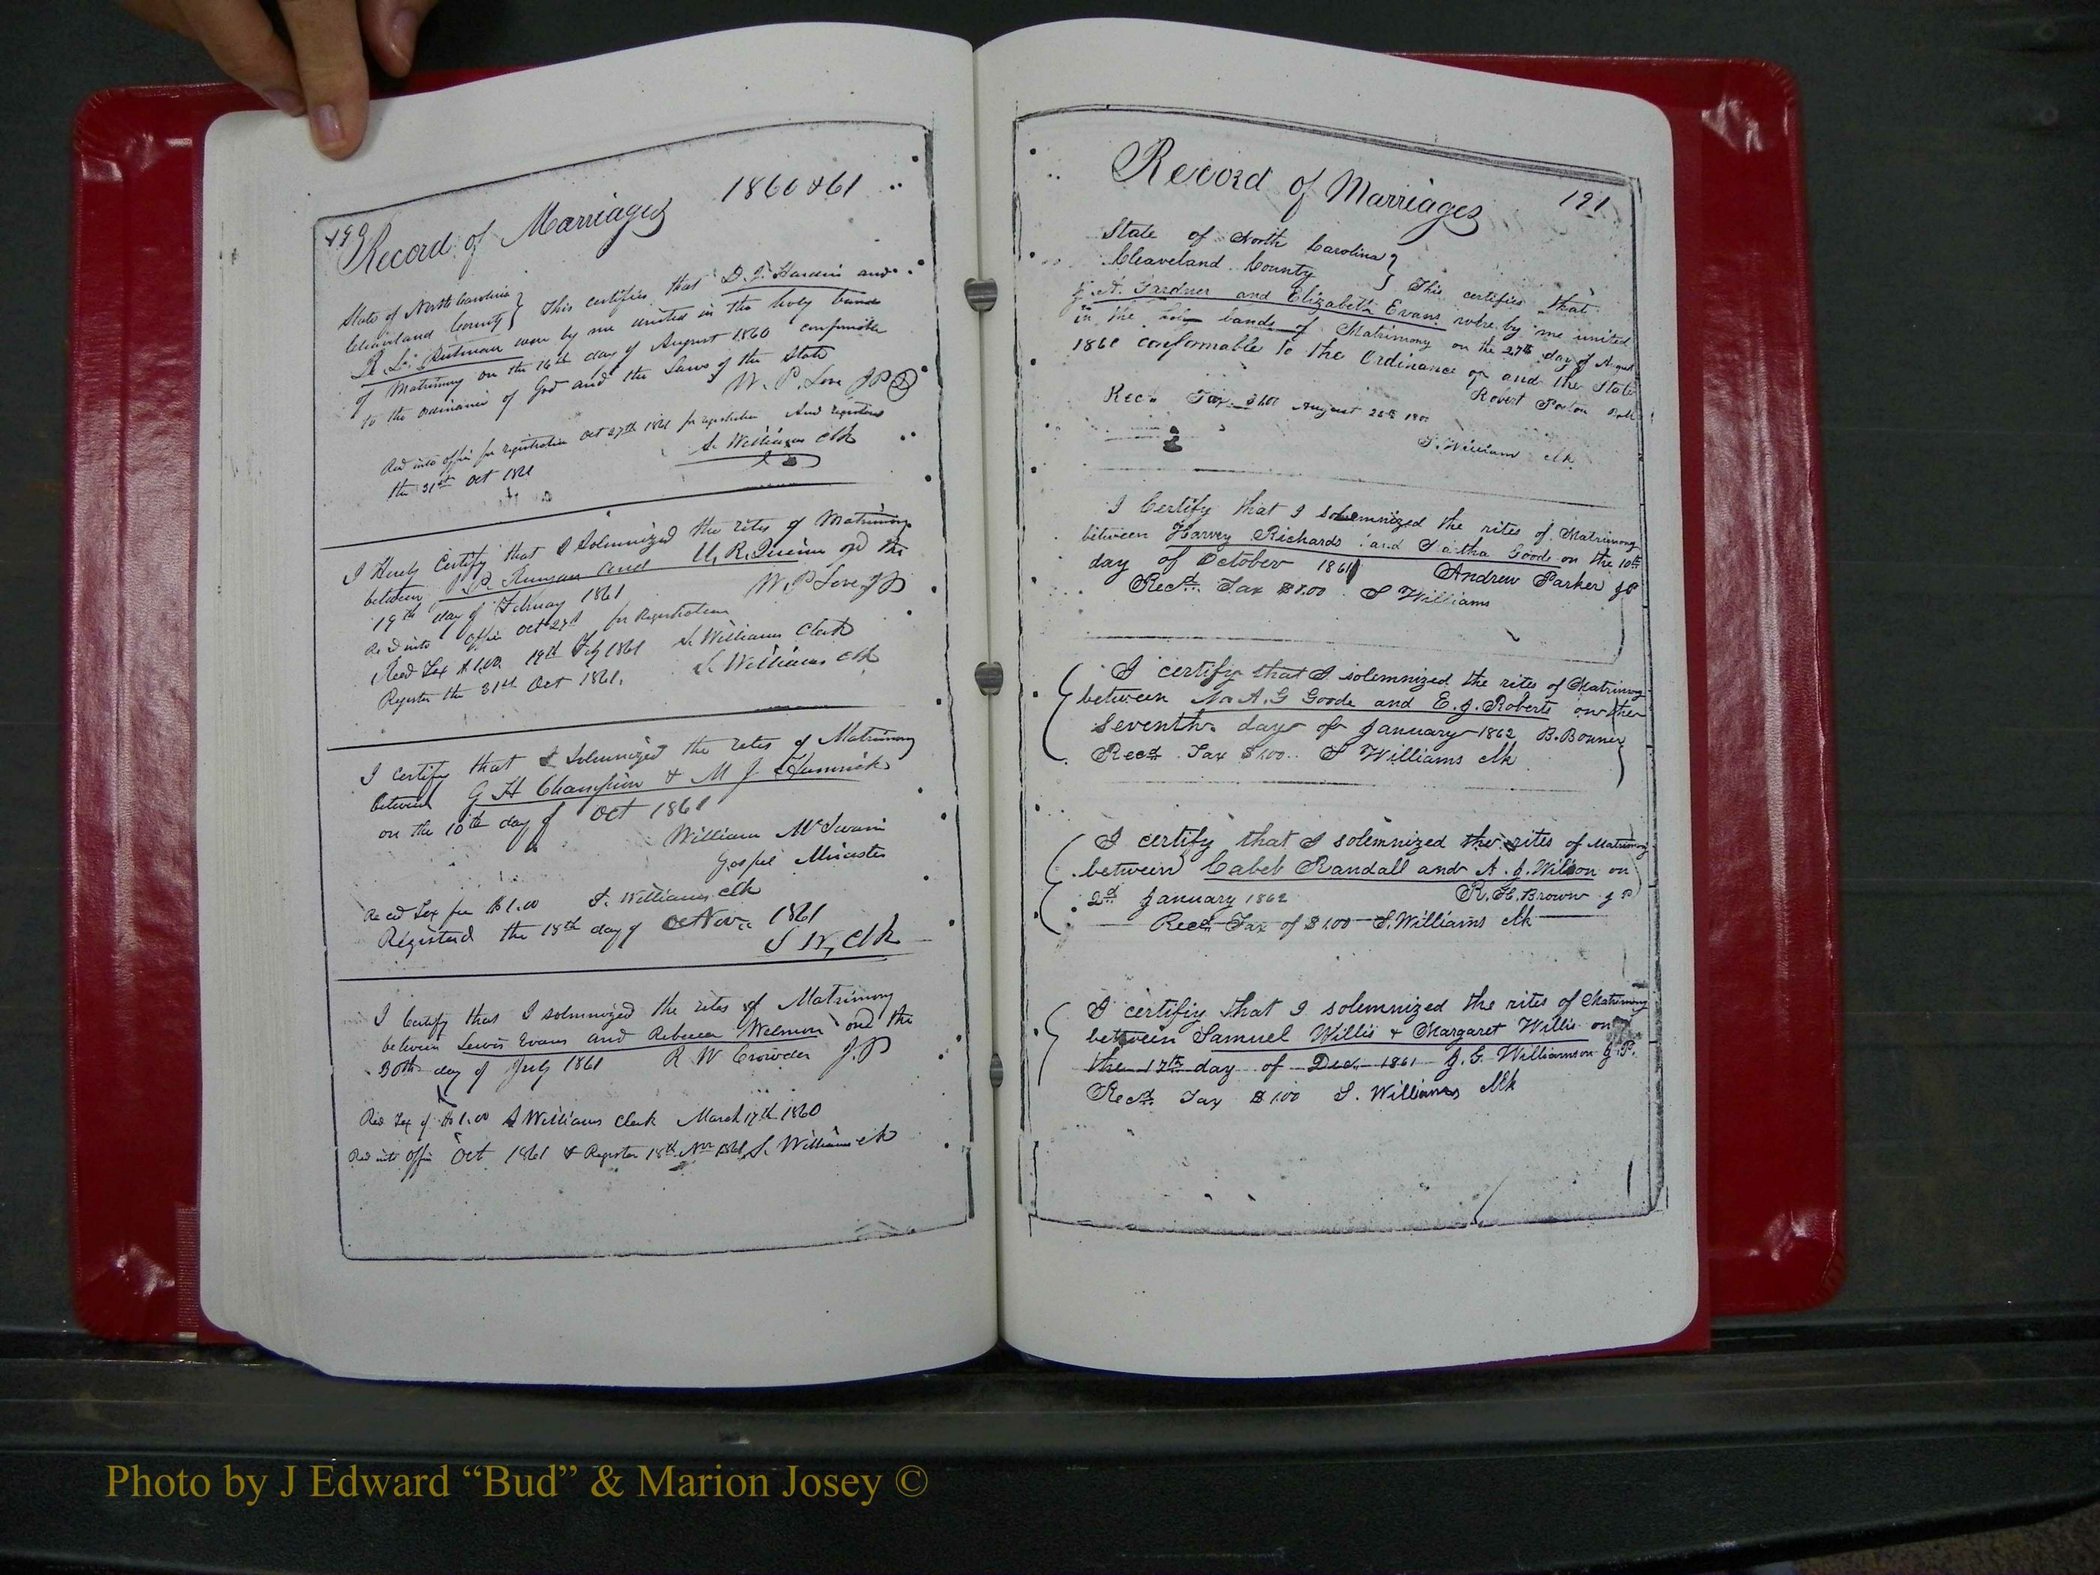 190
Record of Marriages 1860 & 61
State of North Carolina }
Cleaveland County } This certifies that D. J. Hardin and
R. L. Putman were by me united in the holy bands
of Matrimony on the 16th day of August 1860 conformable
to the ordinance of God and the Laws of the State
W. P. Love JP
Recd into office for registration Oct 27th 1861 for registration And registered
the 31st Oct 1861 S. Williams Clk
I Hereby Certify that I Solemnized the rites of Matrimony
between P. P. Runyan and U. R. Quinn on the
19th day of February 1861 W. P Love JP
Recd into office Oct 27th for Registration
Recd Tax $1.00 19th Feby 1861 S. Williams Clerk
Register the 31st Oct 1861. S. Williams Clk
I certify that I Solemnized the rites of Matrimony
between G H Champion & M J Hamrick
on the 10th day of Oct 1861
William McSwain
Gospel Minister
Recd Tax fee $1.00 S. Williams Clk
Registered the 18th day of Nov. 1861
S W, Clk
I Certify that I solemnized the rites of Matrimony
between Lewis Evans and Rebecca on the
30th day of July 1861 R W Crowder J.P
Recd Tax of $1.00 S Williams Clerk March 17th 1860
Recd into Office Oct 1861 & Register 18th Nov 1861 S. Williams clk
Record of Marriages 191
State of North Carolina }
Cleaveland County } This certifies that
A. Gardner and Elizabeth Evans were by me united
in the holy bands of Matrimony on the 27th day of August
1860 conformable to the Ordinance of and the State
Robert Poston
Recd Tax $1.00 August 28th S. William clk
I Certify that I solemnized the rites of Matrimony
between Harvey Richards and Goode on the 10th
day of October 1861 Andrew Parker JP
Recd. Tax $1.00 S Williams
I certify that I solemnized the rites of Matrimony
between A. G Goode and E. J. Roberts on the
Seventh day of January 1862 B. Bonner
Recd Tax $1.00 S Williams Clk
I certify that I solemnized the rites of Matrimony
between Cabeb Randall and A. J. Wilson on
2nd January 1862 R. H. Brown JP
Recd Tax of $1.00 S. Williams Clk
I certifiy that I solemnized the rites of Matrimony
between Samuel Willis & Margaret Willis on
the 17th day of Dec. 1861 J. G. Williamson J. P.
Recd. Tax $1.00 S. Williams Clk
Photo by J Edward “Bud” & Marion Josey ©